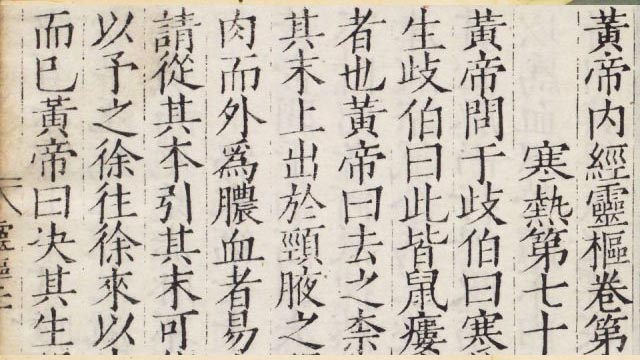 黃帝内經靈樞卷第
寒熱第七十
黃帝問于歧伯曰寒
生歧伯曰此皆鼠瘻
者也黃帝曰去之柰
其末上出於頸腋之
肉而外爲膿血者易
請從其本引其末可
以予之徐往徐來以
而巳黃帝曰决其生
靈樞